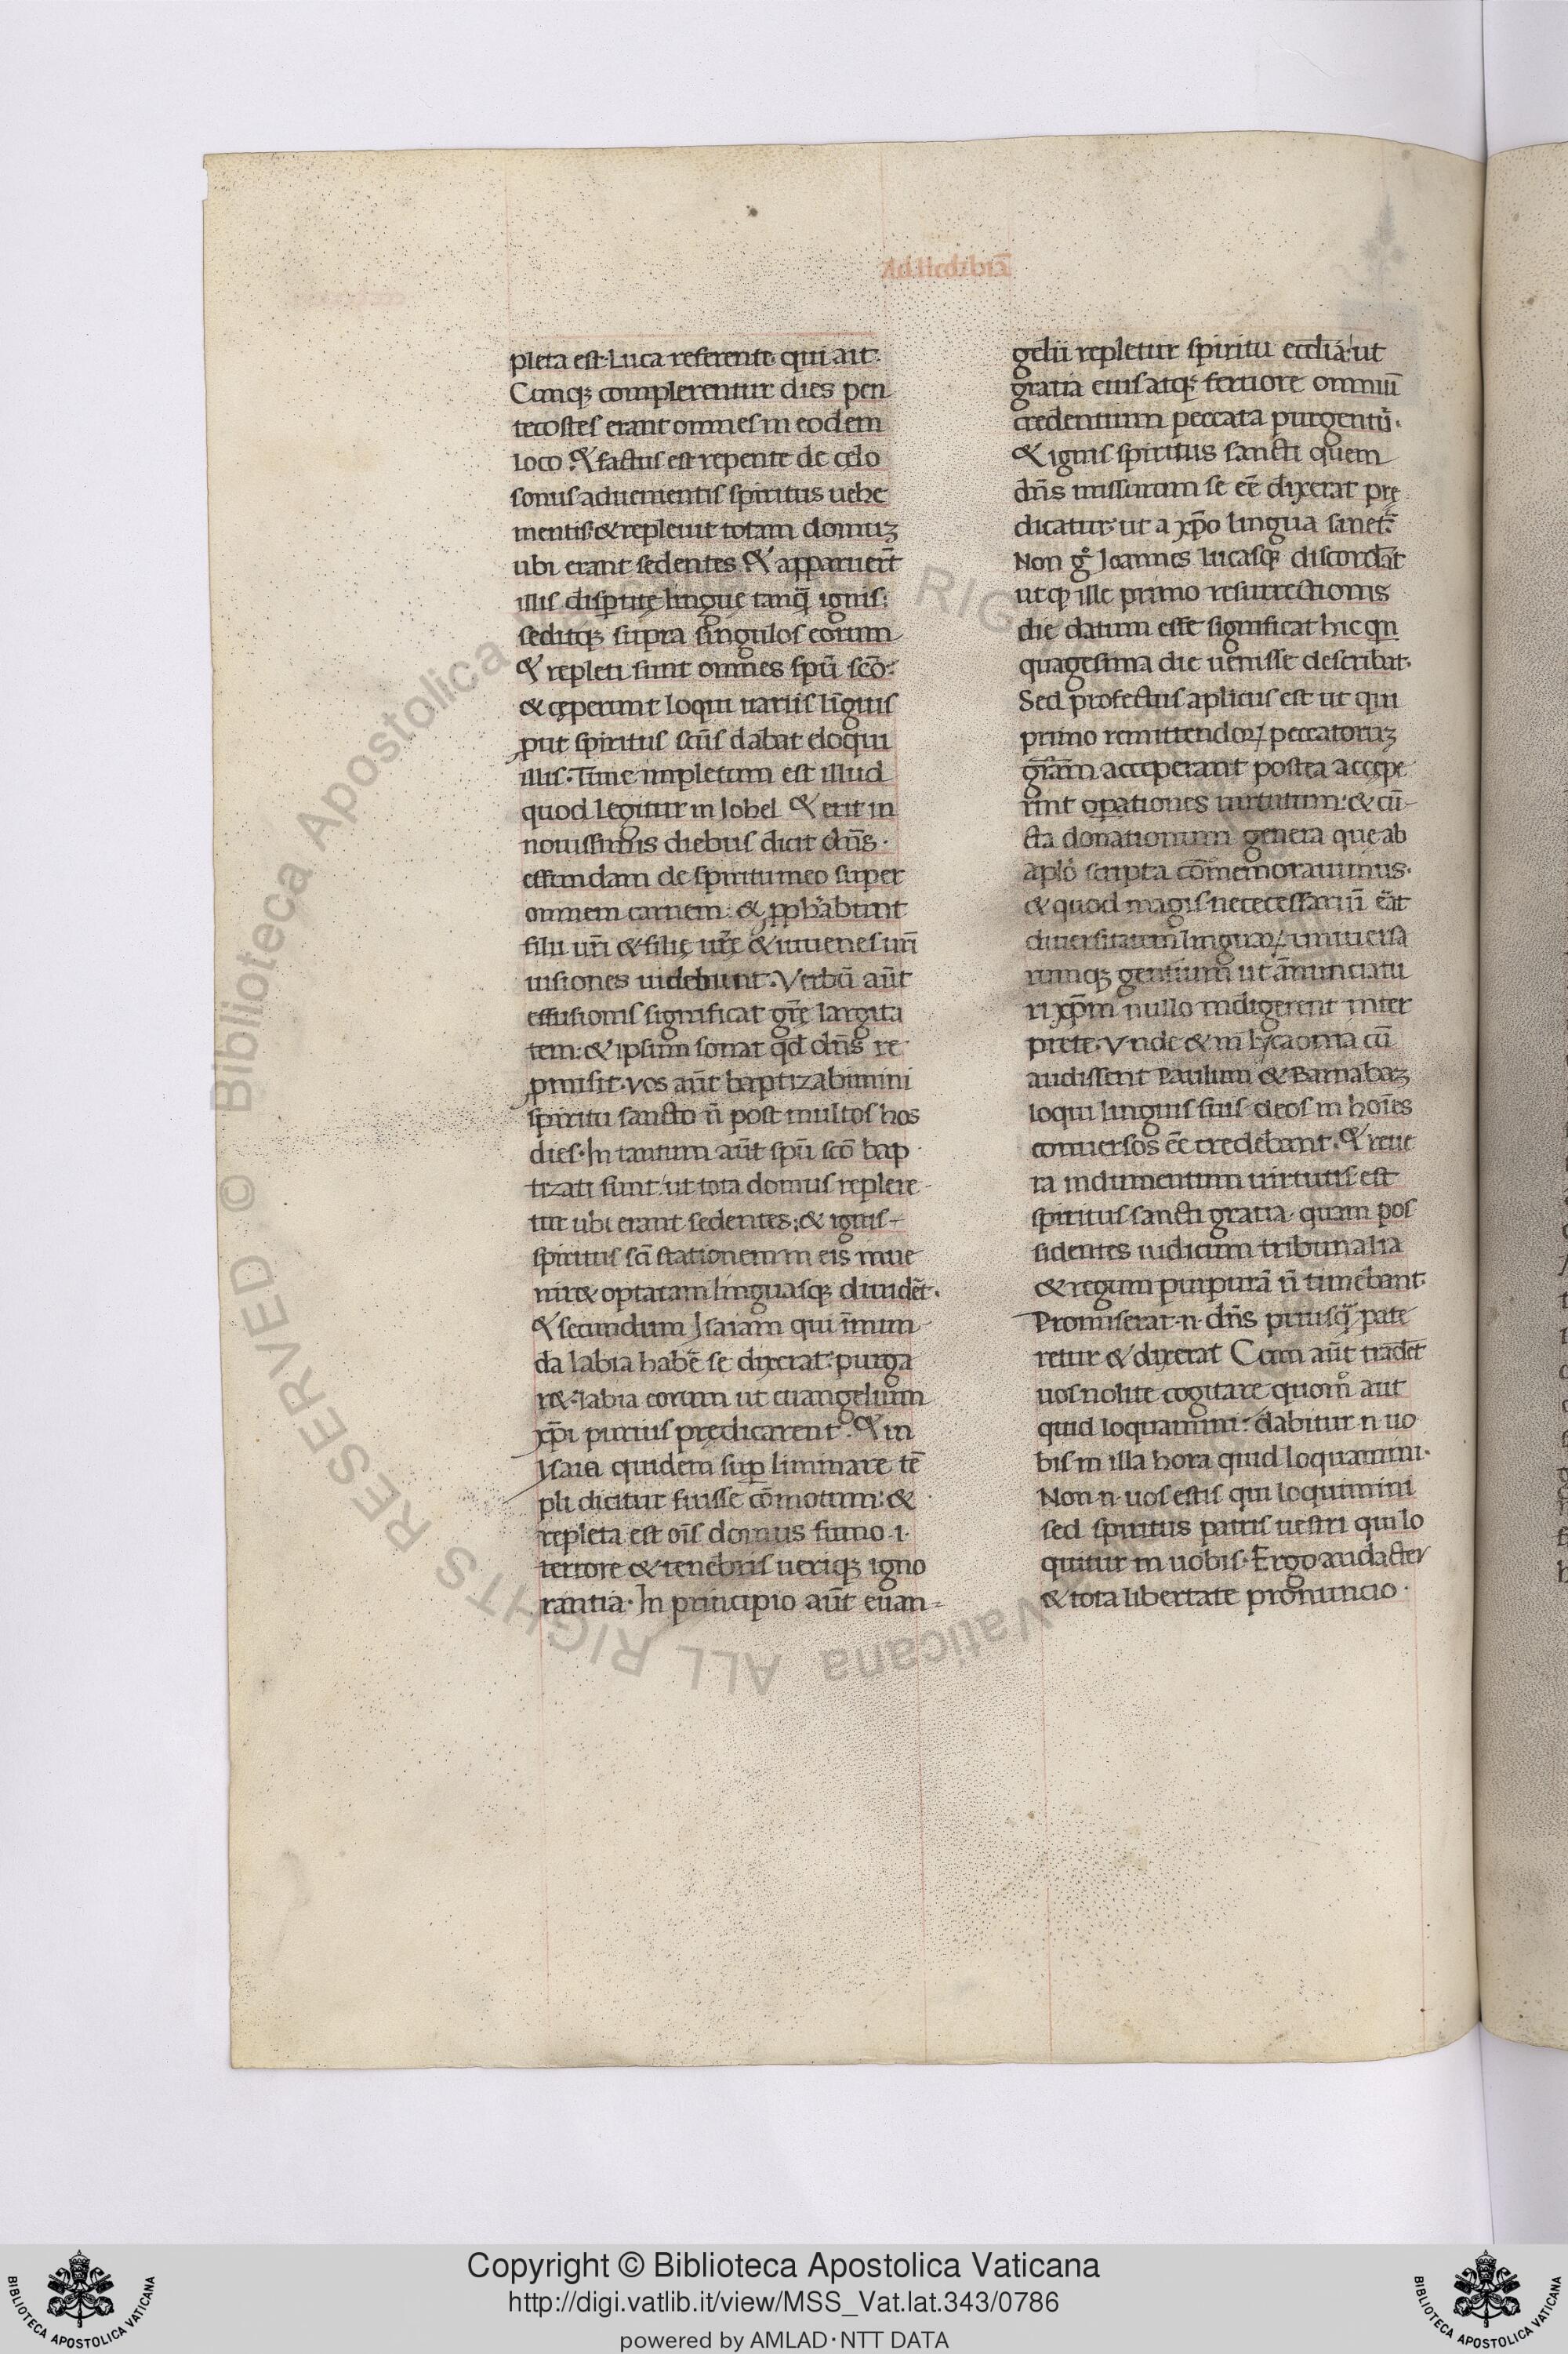 pleta est. Luca referente qui ait:
Cunqꝫ complerentur dies pen
tecostes erant omnes in eodem
loco. & factus est repente de cęlo
sonus aduenientis spiritus uehe
mentis: & repleuit totam domuꝫ
ubi erant sedentes & apparuer̄t
illis dispertitę lingue tanq̄ ignis:
seditqꝫ supra singulos eorum
& repleti sunt omnes spū scō:
& cęperunt loqui uariis linguis
ꝓut spiritus scūs dabat eloqui
illis. Tunc impletum est illud
quod legitur in Johel & erit in
nouissimis diebus dicit dn̄s.
effundam de spiritu meo super
omnem carnem: & ꝓph̄abunt
filii ur̄i & filię ur̄ę & iuuenes ur̄i
uisiones uidebunt. Verbū aūt
effusionis significat gr̄ę largita
tem: & ipsum sonat qd̄ dn̄s re
ꝓmisit. vos aūt baptizabimini
spiritu sancto n̄ post multos hos
dies. In tantum aūt spū scō bap
tizati sunt ut tota domus replere
tur ubi erant sedentes: & ignis
spiritus sc̄i stationem in eis inue
nir& optatam linguasqꝫ diuidēt.
& secundum Isaiam qui īmun
da labia habē se dixerat: purga
r& labia eorum ut euangelium
xp̄i purius prędicarent. & in
Ysaia quidem suꝑ liminare tē
pli dicitur fuisse cōmotum: &
repleta est oīs domus fumo .i.
terrore & tenebris uerique igno
rantia. In principio aūt euan-
gelii repletur spiritu eccl̄ia: ut
gratia eius atqꝫ feruore omniū
credentium peccata purgent᷑.
& ignis spiritus sancti quem
dn̄s missurum se eē dixerat prę
dicatur: ut a xp̄o lingua sanet᷑
Non gͦ Ioannes Lucasqꝫ discordāt
ut qꝫ ille primo resurrectionis
die datum esse significat hic qn
quagesima die uenisse describat.
Sed profectus aplicus est ut qui
primo remittendoꝝ peccatoruꝫ
gr̄am acceperant postea accępe
rint oꝑationes uirtutum: & cū
cta donationum genera que ab
aplō scripta cōmemorauimus.
& quod magis nececessariū erāt
diuersitatem linguaꝝ uniuersa
rumqꝫ gentium ut ānunciatu
ri xp̄m nullo indigerent inter
prete. Vnde & in lycaonia cū
audissent Paulum & Barnabaꝫ
loqui linguis suis deos in hoīes
conuersos eē credebant. & reue
ra indumentum uirtutis est
spiritus sancti gratia quam pos
sidentes iudicum tribunalia
& regum purpurā n̄ timebant.
Promiserat .n. dn̄s priusq̄ pate
retur & dixerat Cum aūt tradēt
uos nolite cogitare quom̄ aut
quid loquamini: dabitur .n. uo
bis in illa hora quid loquamini.
Non .n. uos estis qui loquimini
sed spiritus patris uestri qui lo
quitur in uobis. Ergo audacter
& tota libertate pronuncio.
Copyright © Biblioteca Apostolica Vaticana
http://digi.vatlib.it/view/MSS_Vat.lat.343/0786
powered by AMLAD·NTT DATA